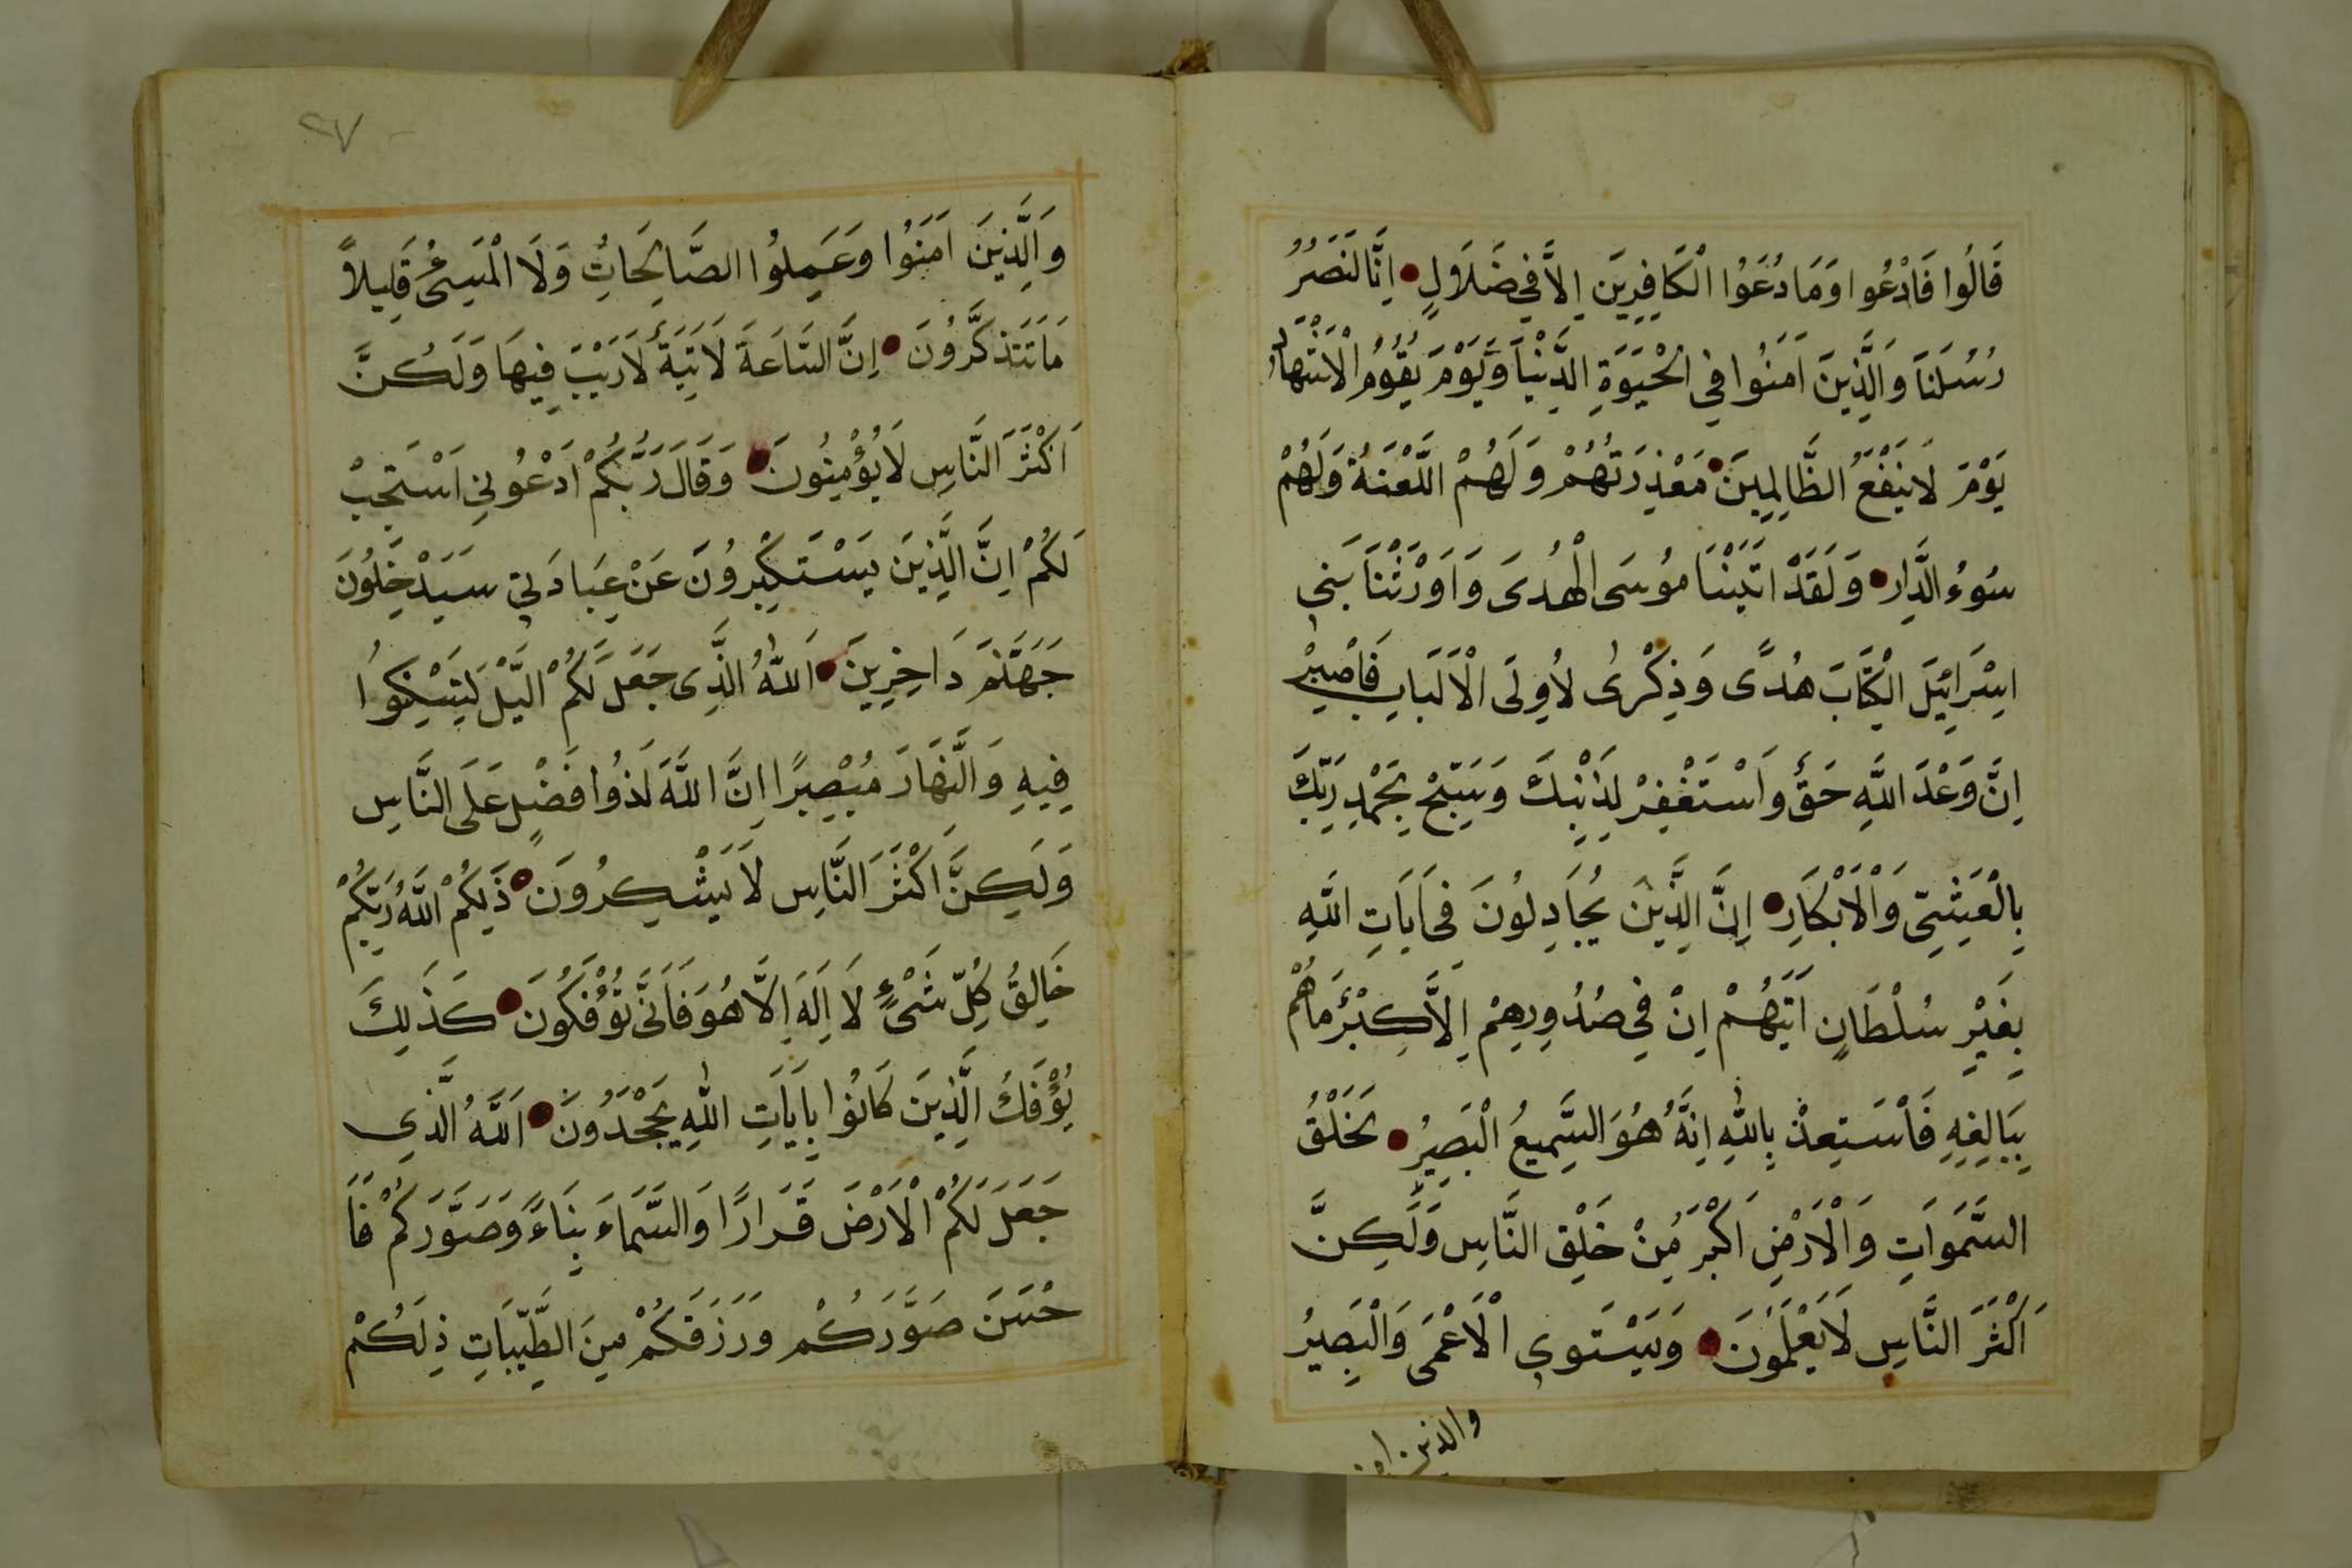 قَالُوا فَادْعُوا وَمَا دُعَوُا الْكَافِرِينَ اِلَّا فِي ضَلَالٍ اِنَّا لَنَصُرُ
رُسُلَنَا وَالَّذِينَ اٰمَنُوا فِي الْحَيٰوةِ الدُّنْيَا وَيَوْمَ يَقُومُ الْاَشْهَادُ
يَوْمَ لَا يَنْفَعُ الظَّالِمِينَ مَعْذِرَتُهُمْ وَلَهُمْ اللَّعْنَةُ وَلَهُمْ
سُوءُ الدَّارِ وَلَقَدْ اٰتَيْنَا مُوسَى الْهُدَى وَاَوْرَثْنَا بَنِي
اِسْرَائِيَلَ الْكِتَابَ هُدًى وَذِكْرٰى لِاُولَى الْاَلْبَابِ فَاصْبِرْ
اِنَّ وَعْدَ اللَّهِ حَقٌّ وَاَسْتَغْفِرْ لِذَنْبِكَ وَسَبِّحْ بِحَمْدِ رَبِّكَ
بِالْعَشِيِّ وَالْاَبْكَارِ اِنَّ الَّذِيْنَ يُجَادِلُونَ فِى اَيَاتِ اللَّهِ
بِغَيْرِ سُلْطَانٍ اَتَيهُمْ اِنْ فِي صُدُورِهِمْ اِلَّا كِبْرٌ مَاهُمْ
بِبَالِغِهِ فَاَسْتَعِذْ بِاللّٰهِ اِنَّهُ هُوَ السَّمِيعُ الْبَصِيرُ لَخَلْقُ
السَّمَوَاتِ وَالْاَرْضِ اَكْبَرُ مِنْ خَلْقِ النَّاسِ وَلَكِنَّ
اَكْثَرَ النَّاسِ لَا يَعْلَمُونَ وَيَسْتَوِي الْاَعْمَى وَالْبَصِيرُ
والذين امن
٢٧
وَالَّذِينَ اٰمَنُوا وَعَمِلُوا الصَّالِحَاتِ وَلَا الْمَسِىُٔ قَلِيلاً
مَا تَتَذَكَّرُونَ اِنَّ السَّاعَةَ لَاٰتِيَةٌ لَا رَيْبَ فِيهَا وَلَكِنَّ
اَكْثَرَ النَّاسِ لَا يُؤْمِنُونَ وَقَالَ رَبُّكُمْ اَدْعُونِي اَسْتَجِبْ
لَكُمْ اِنَّ الَّذِينَ يَسْتَكْبِرُونَ عَنْ عِبَادَتِي سَيَدْخِلُونَ
جَهَنَّمَ دَاخِرِينَ اَللّٰهُ الَّذِى جَعَلَ لَكُمْ الَّيْلَ لِتَسْكِنُوا
فِيهِ وَالنَّهَارَ مُبْصِرًا اِنَّ اللَّهَ لَذُوا فَضْلٍ عَلَى النَّاسِ
وَلَكِنَّ اَكْثَرَ النَّاسِ لَا يَشْكِرُونَ ذَلِكُمْ اللَّهُ رَبُّكُمْ
خَالِقُ كُلِّ شَىْءٍ لَا اِلَهَ اِلَّا هُوَ فَاَنَّى تُؤْفَكُونَ كَذَلِكَ
يُؤْفَكُ الَّذِينَ كَانُوا بِاَيَاتِ اللّٰهِ يَجْحَدُونَ اَللَّهُ الَّذِي
جَعَلَ لَكُمْ الْاَرْضَ قَرَارًا وَالسَّمَاءَ بِنَاءً وَصَوَّرَكُمْ فَاَ
حْسَنَ صَوَّرَكُمْ وَرَزَقَكُمْ مِنَ الطَّيِّبَاتِ ذِلَكُمْ